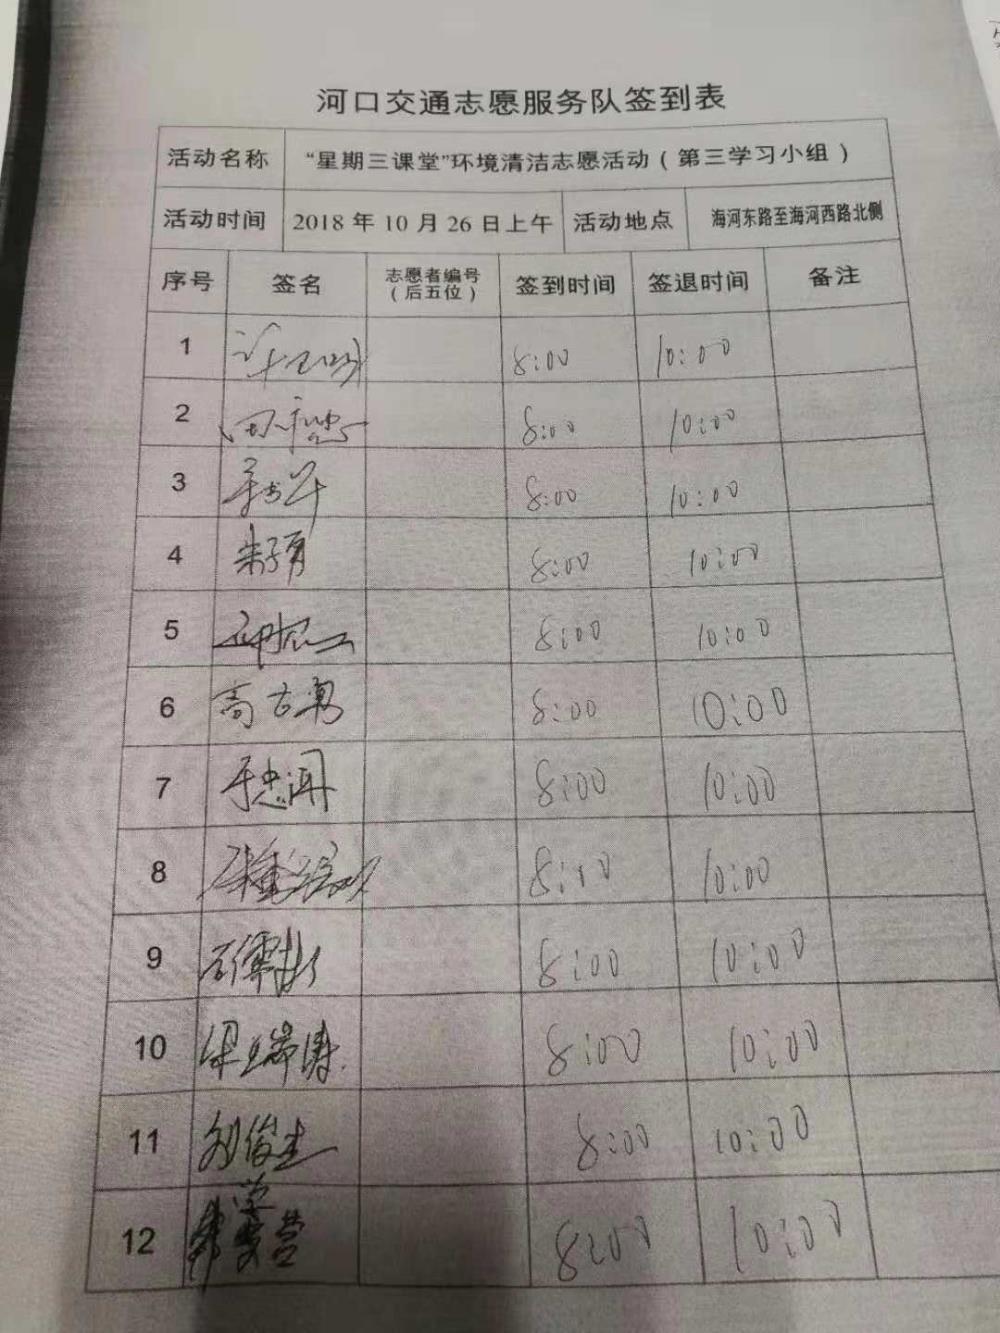 河口交通志愿服务队签到表
活动名称 “星期三课堂”环境清洁志愿活动（第三学习小组）
活动时间 2018 年 10 月 26 日上午 活动地点 海河东路至海河西路北侧
序号 签名 志愿者编号（后五位） 签到时间 签退时间 备注
1 8:00 10:00
2 8:00 10:00
3 8:00 10:00
4 8:00 10:00
5 8:00 10:00
6 高古勇 8:00 10:00
7 于忠润 8:00 10:00
8 8:00 10:00
9 8:00 10:00
10 梁瑞涛 8:00 10:00
11 刘俊杰 8:00 10:00
12 8:00 10:00